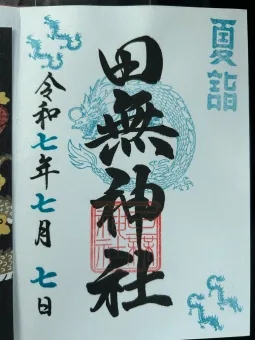 夏詣
田無神社
令和七年七月七日